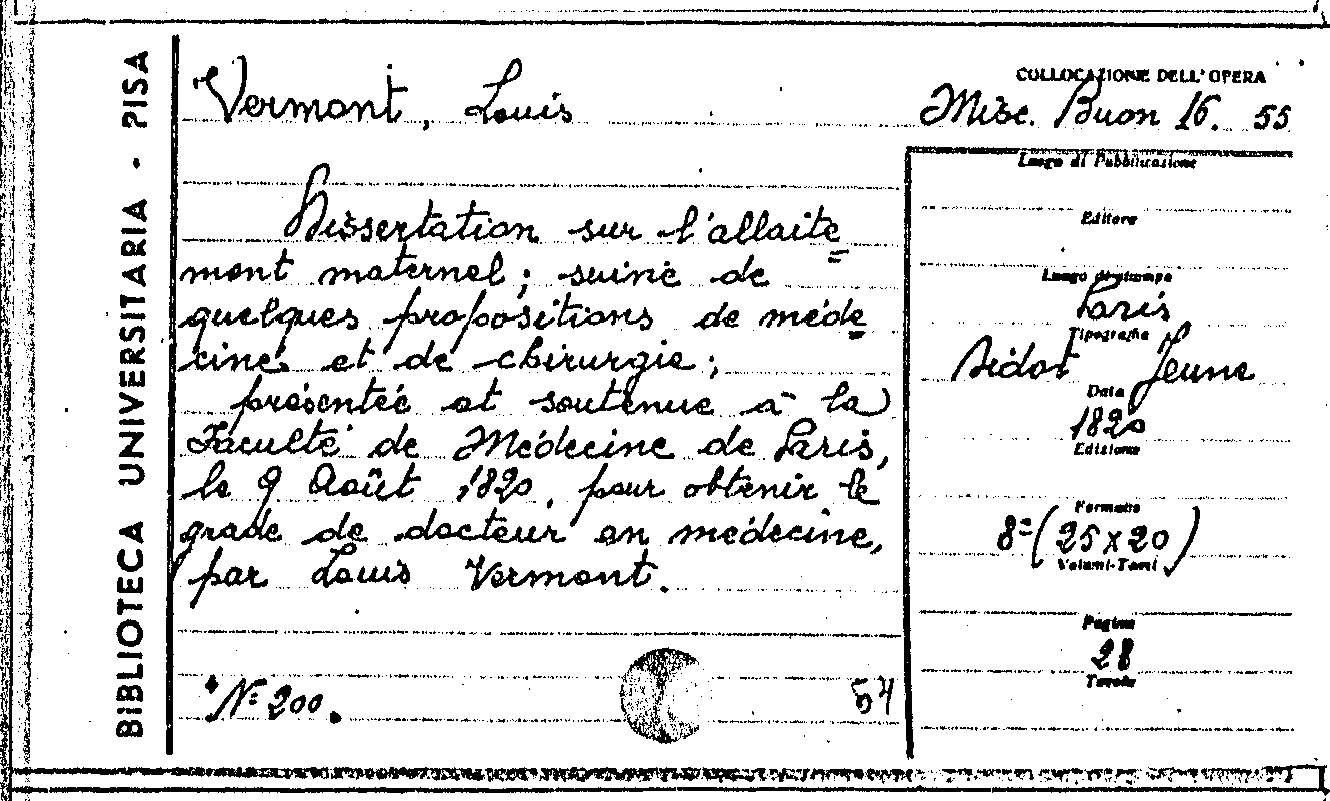 BIBLIOTECA UNIVERSITARIA - PISA
Vermont, Louis
Dissertation sur l'allaite=
ment maternel; suivie de
quelques propositions de méde=
cine et de chirurgie;
présentée et soutenue à la
Faculté de Médecine de Paris,
le 9 Août 1820, pour obtenir le
grade de docteur en médecine,
par Louis Vermont.
N= 200.
54
COLLOCAZIONE DELL'OPERA
Misc. Buon 16. 55
Luogo di Pubblicazione
Editore
Luogo di stampa
Paris
Tipografia
Didot Jeune
Data
1820
Edizione
Formato
8=(25x20)
Volumi-Tomi
Pagine
28
Tavole